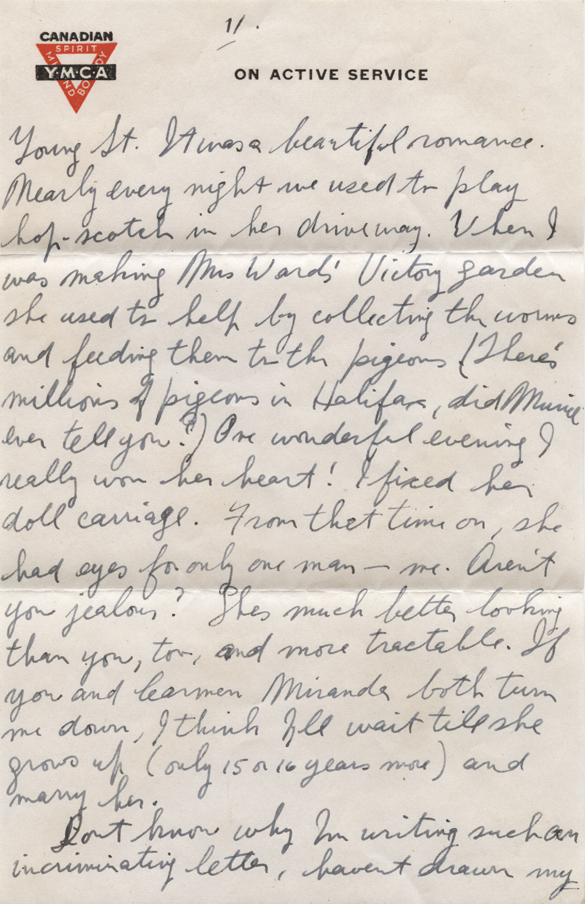 11.
CANADIAN
SPIRIT
MIND
Y·M·C·A
BODY
ON ACTIVE SERVICE
Young St. It was a beautiful romance.
Nearly every night we used to play
hop-scotch in her driveway. When I
was making Mrs Wards' Victory garden
she used to help by collecting the worms
and feeding them to the pigeons (There's
millions of pigeons in Halifax, did Muriel
ever tell you?) One wonderful evening I
really won her heart! I fixed her
doll carriage. From that time on, she
had eyes for only one man — me. Aren't
you jealous? Shes much better looking
than you, too, and more tractable. If
you and Carmen Miranda both turn
me down, I think I'll wait till she
grows up (only 15 or 16 years more) and
marry her.
Dont know why I'm writing such an
incriminating letter, havent drawn my